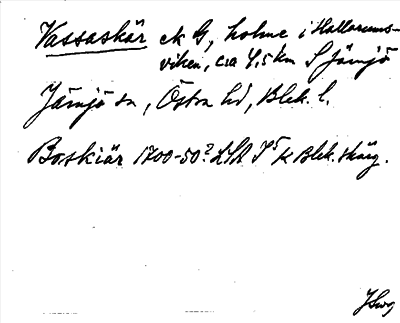 Vassaskär ek G, holme i Hallarums-
viken, c:a 4,5 km S Jämjö
Jämjö sn, Östra hd, Blek. l.
Boskiär 1700-50? LSA K Blek. skärg.